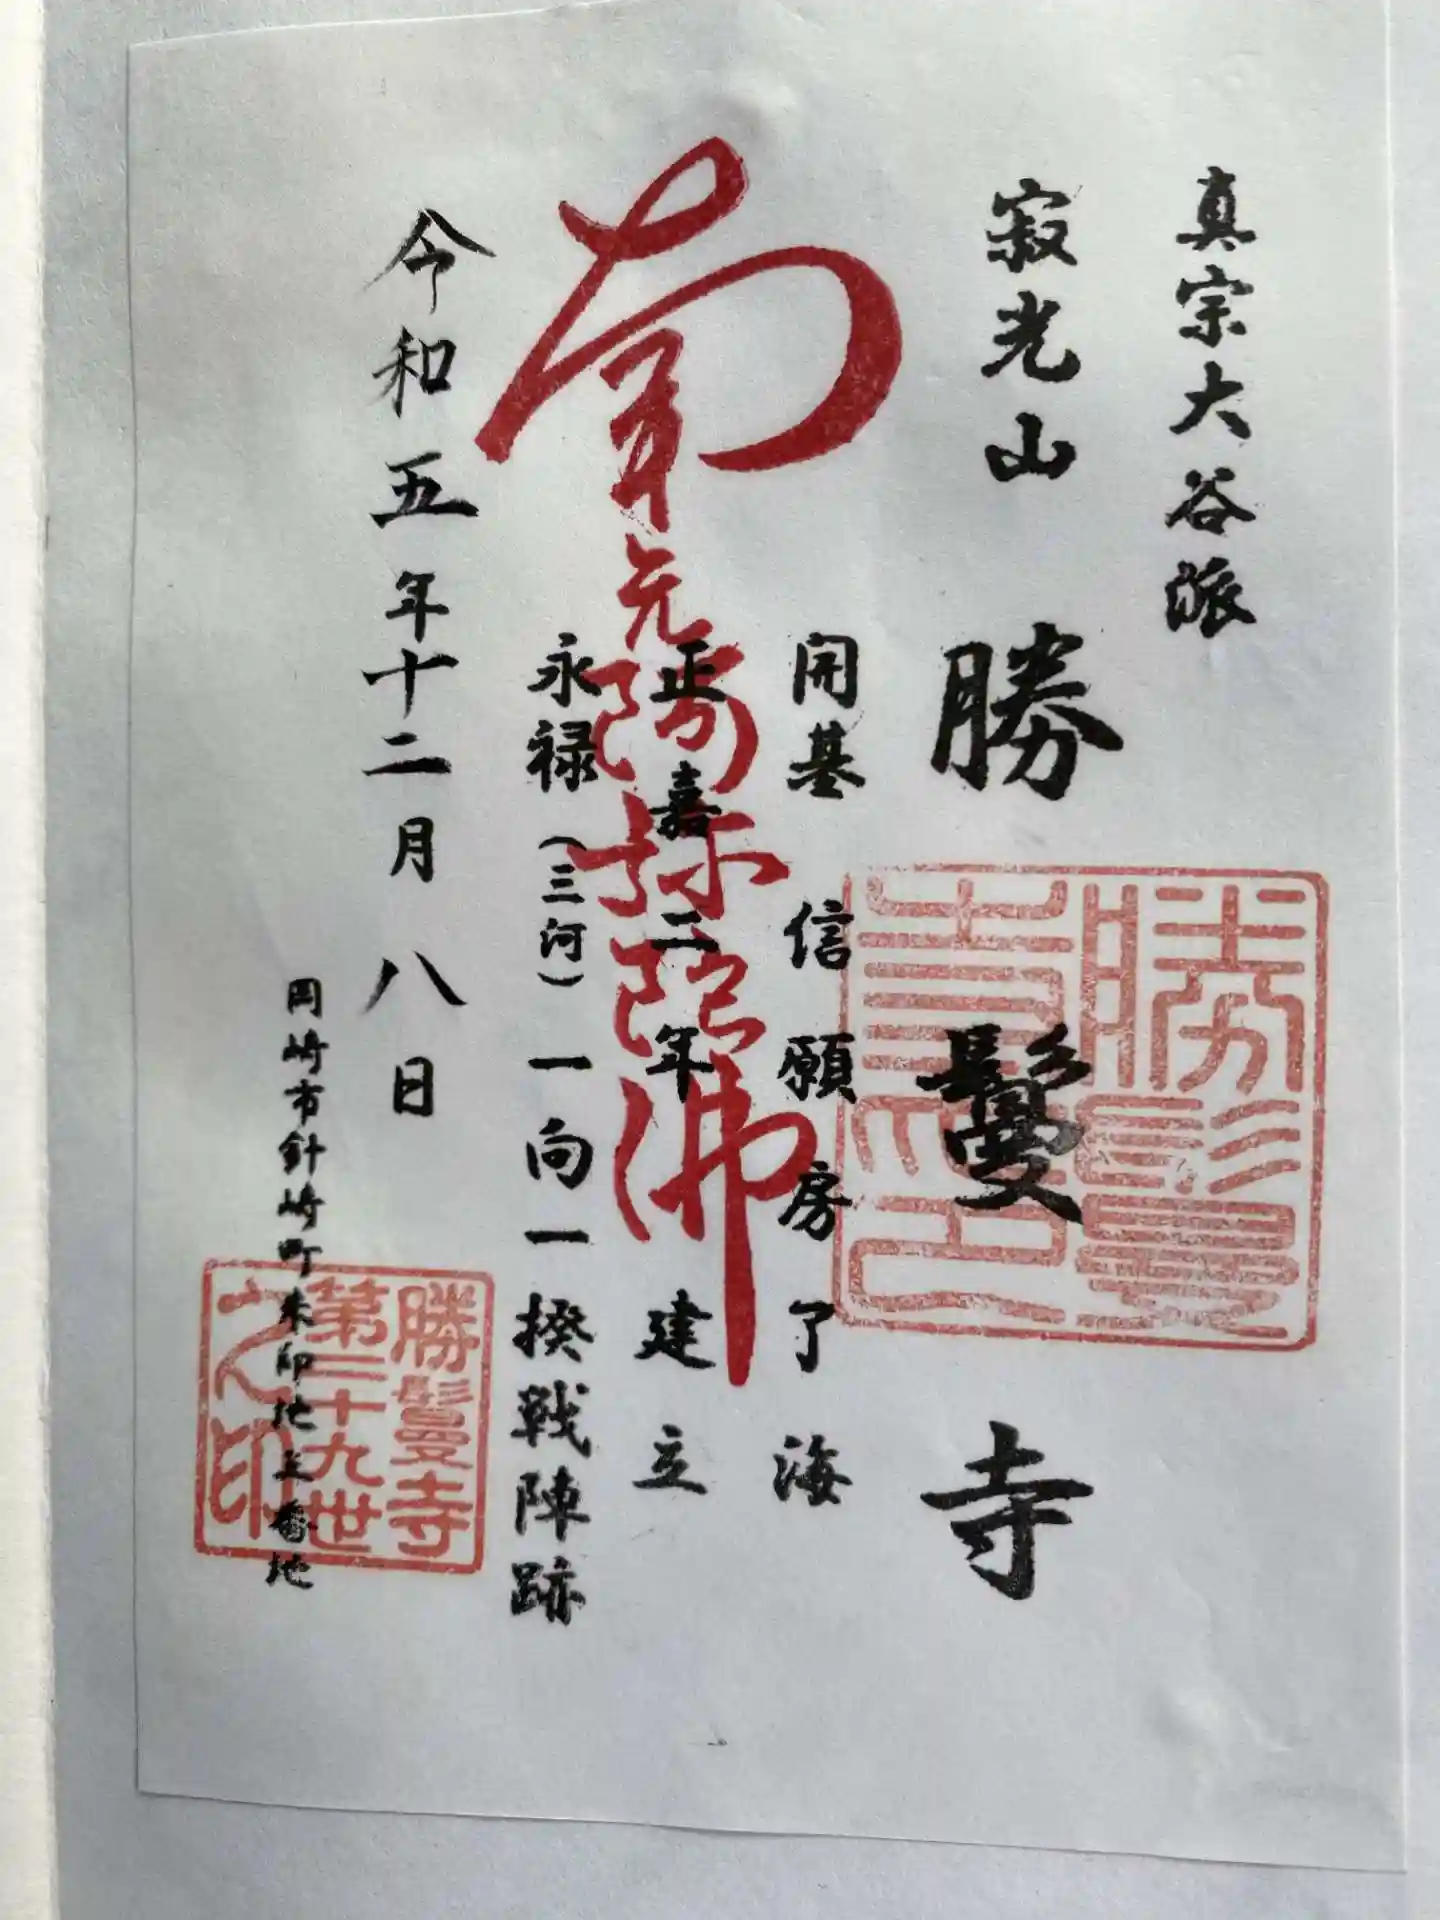 真宗大谷派
寂光山
勝鬘寺
勝鬘
寺印
開基 信願房了海
正嘉二年 建立
南无阿弥陀佛
永禄(三河)一向一揆戦陣跡
令和五年十二月八日
岡崎市針崎町朱印地三番地
勝鬘寺
第二十九世
之印